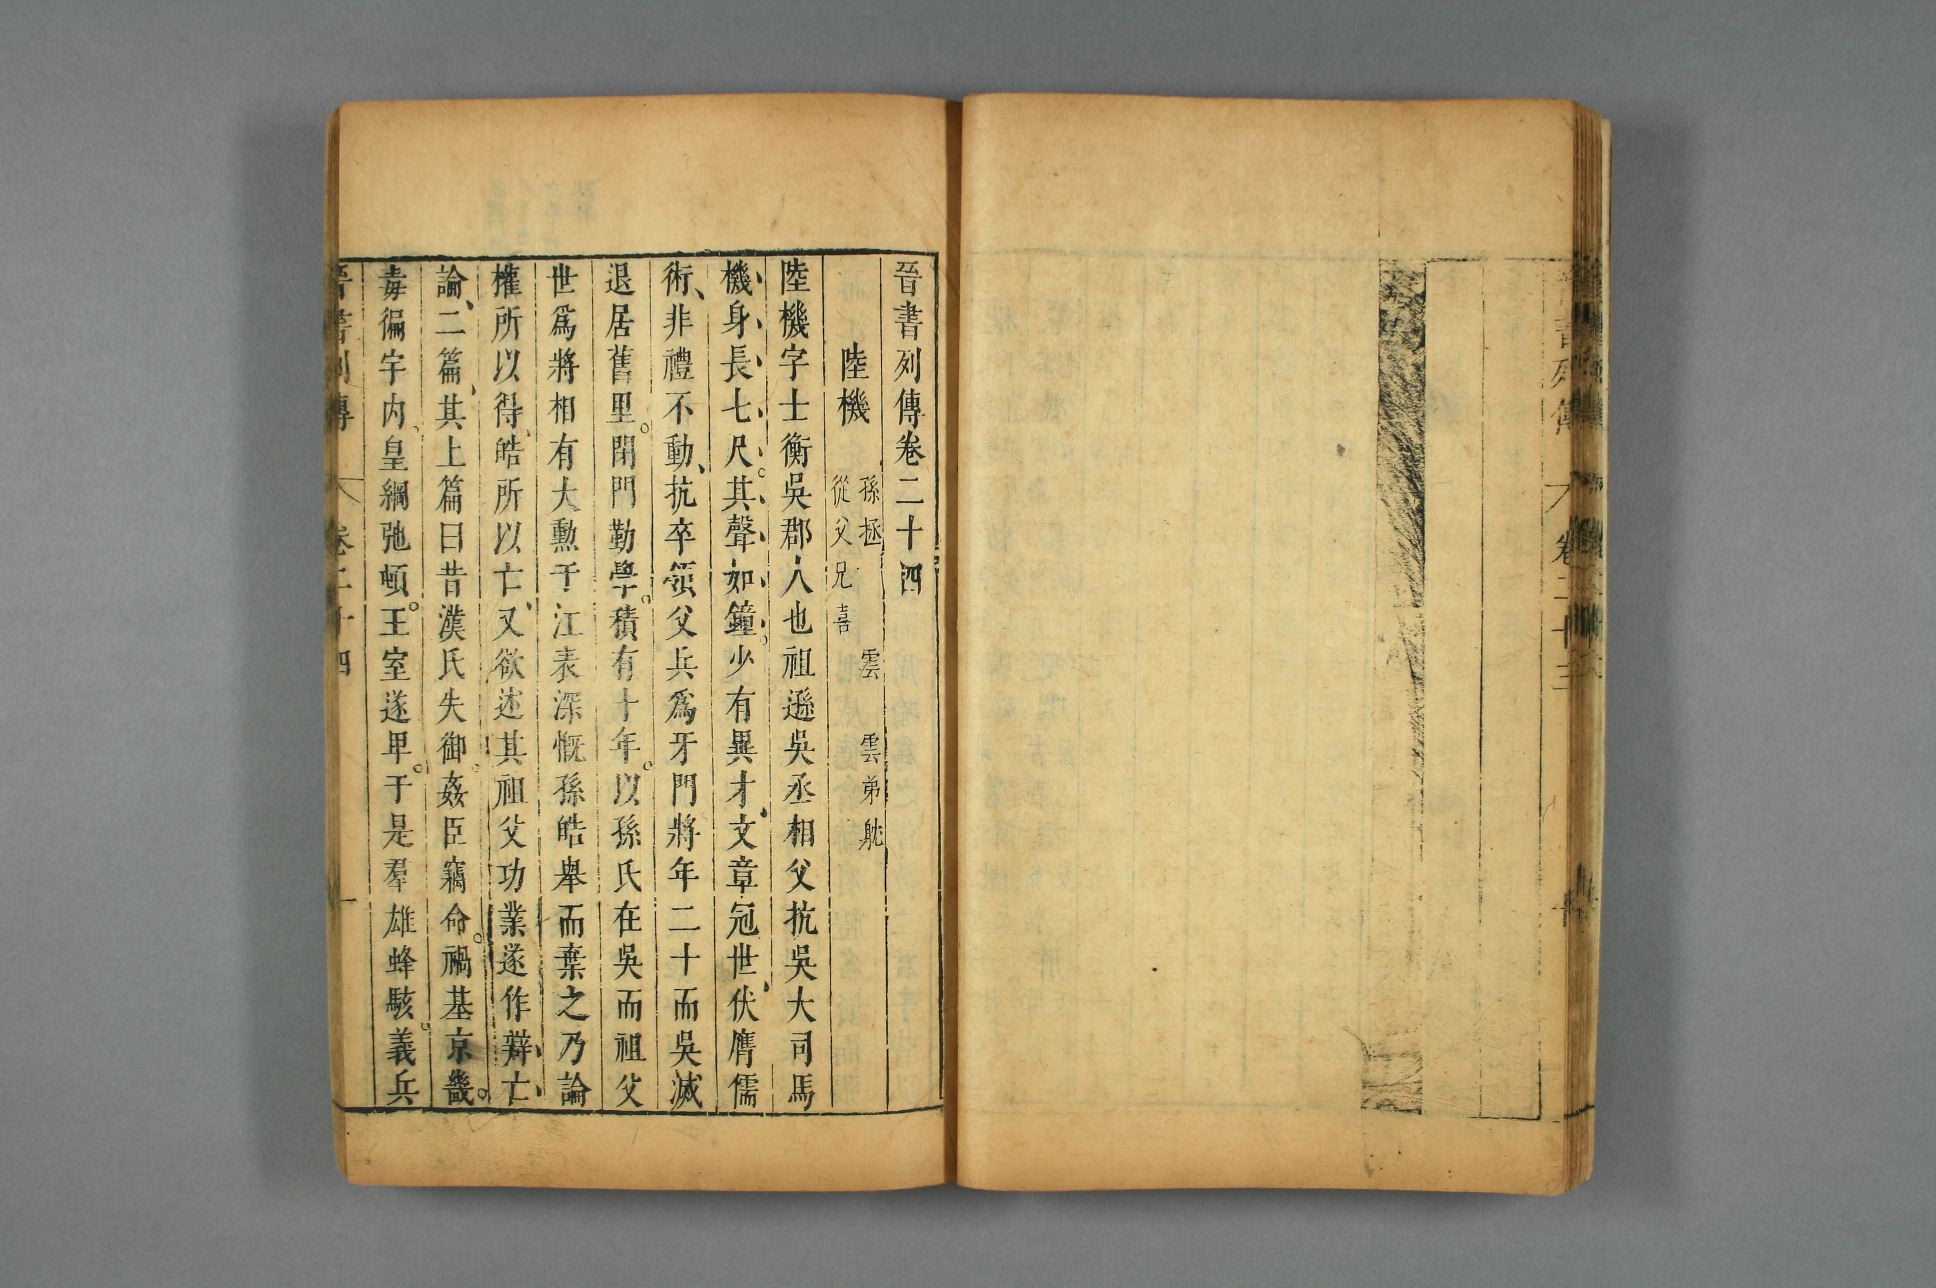 晉書列傳 卷二十三
晉書列傳卷二十四
陸機 孫拯 雲 雲弟耽
從父兄喜
陸機字士衡吳郡人也祖遜吳丞相父抗吳大司馬
機身長七尺。其聲如鐘。少有異才、文章冠世、伏膺儒
術、非禮不動、抗卒領父兵爲牙門將年二十而吳滅
退居舊里。閉門勤學。積有十年。以孫氏在吳而祖父
世爲將相有大勳于江表深慨孫皓舉而棄之乃論
權所以得、皓所以亡、又欲述其祖父功業遂作辯亡
論、二篇、其上篇曰昔漢氏失御。姦臣竊命。禍基京畿。
毒徧宇内、皇綱弛頓。王室遂卑。于是羣雄蜂駭。義兵
晉書列傳 卷二十四 一